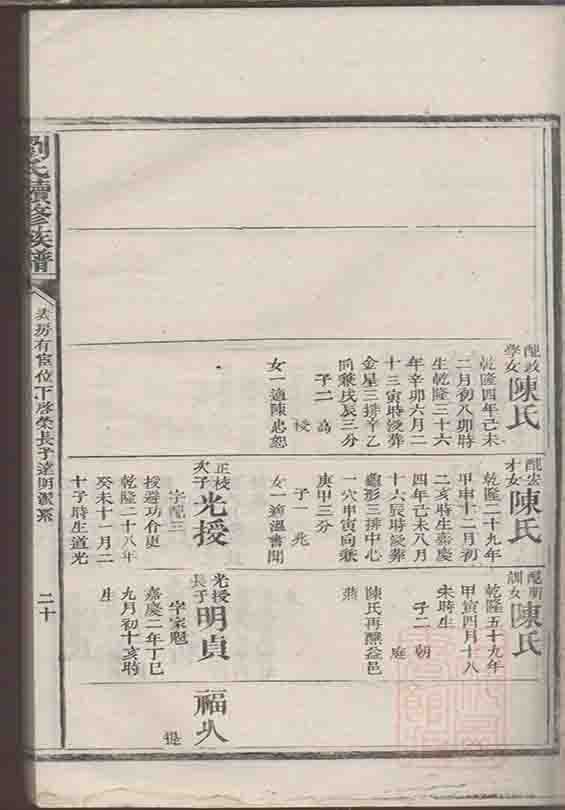 配敦學女陳氏
乾隆四年己未
二月初八卯時
生乾隆三十六
年辛卯六月二
十三寅時沒葬
金星三排辛乙
向兼戌辰三分
子二 高
授
女一適陳忠恕
配宏才女陳氏
乾隆二十九年
甲申十二月初
二亥時生嘉慶
四年己未八月
十六辰時沒葬
龜形三排中心
一穴甲寅向兼
庚甲三分
子一 兆
女一適溫書聞
正枝次子光授
字配三
授遊功份吏
乾隆二十八年
癸未十一月二
十子時生道光
配朝訓女陳氏
乾隆五十九年
甲寅四月十八
未時生
子二 朝
庭
陳氏再醮益邑
燕
光授長子明貞
字家魁
嘉慶二年丁巳
九月初十亥時
生
福
提
劉氏續修族譜
房有宦位下啓榮長子達明派系
二十